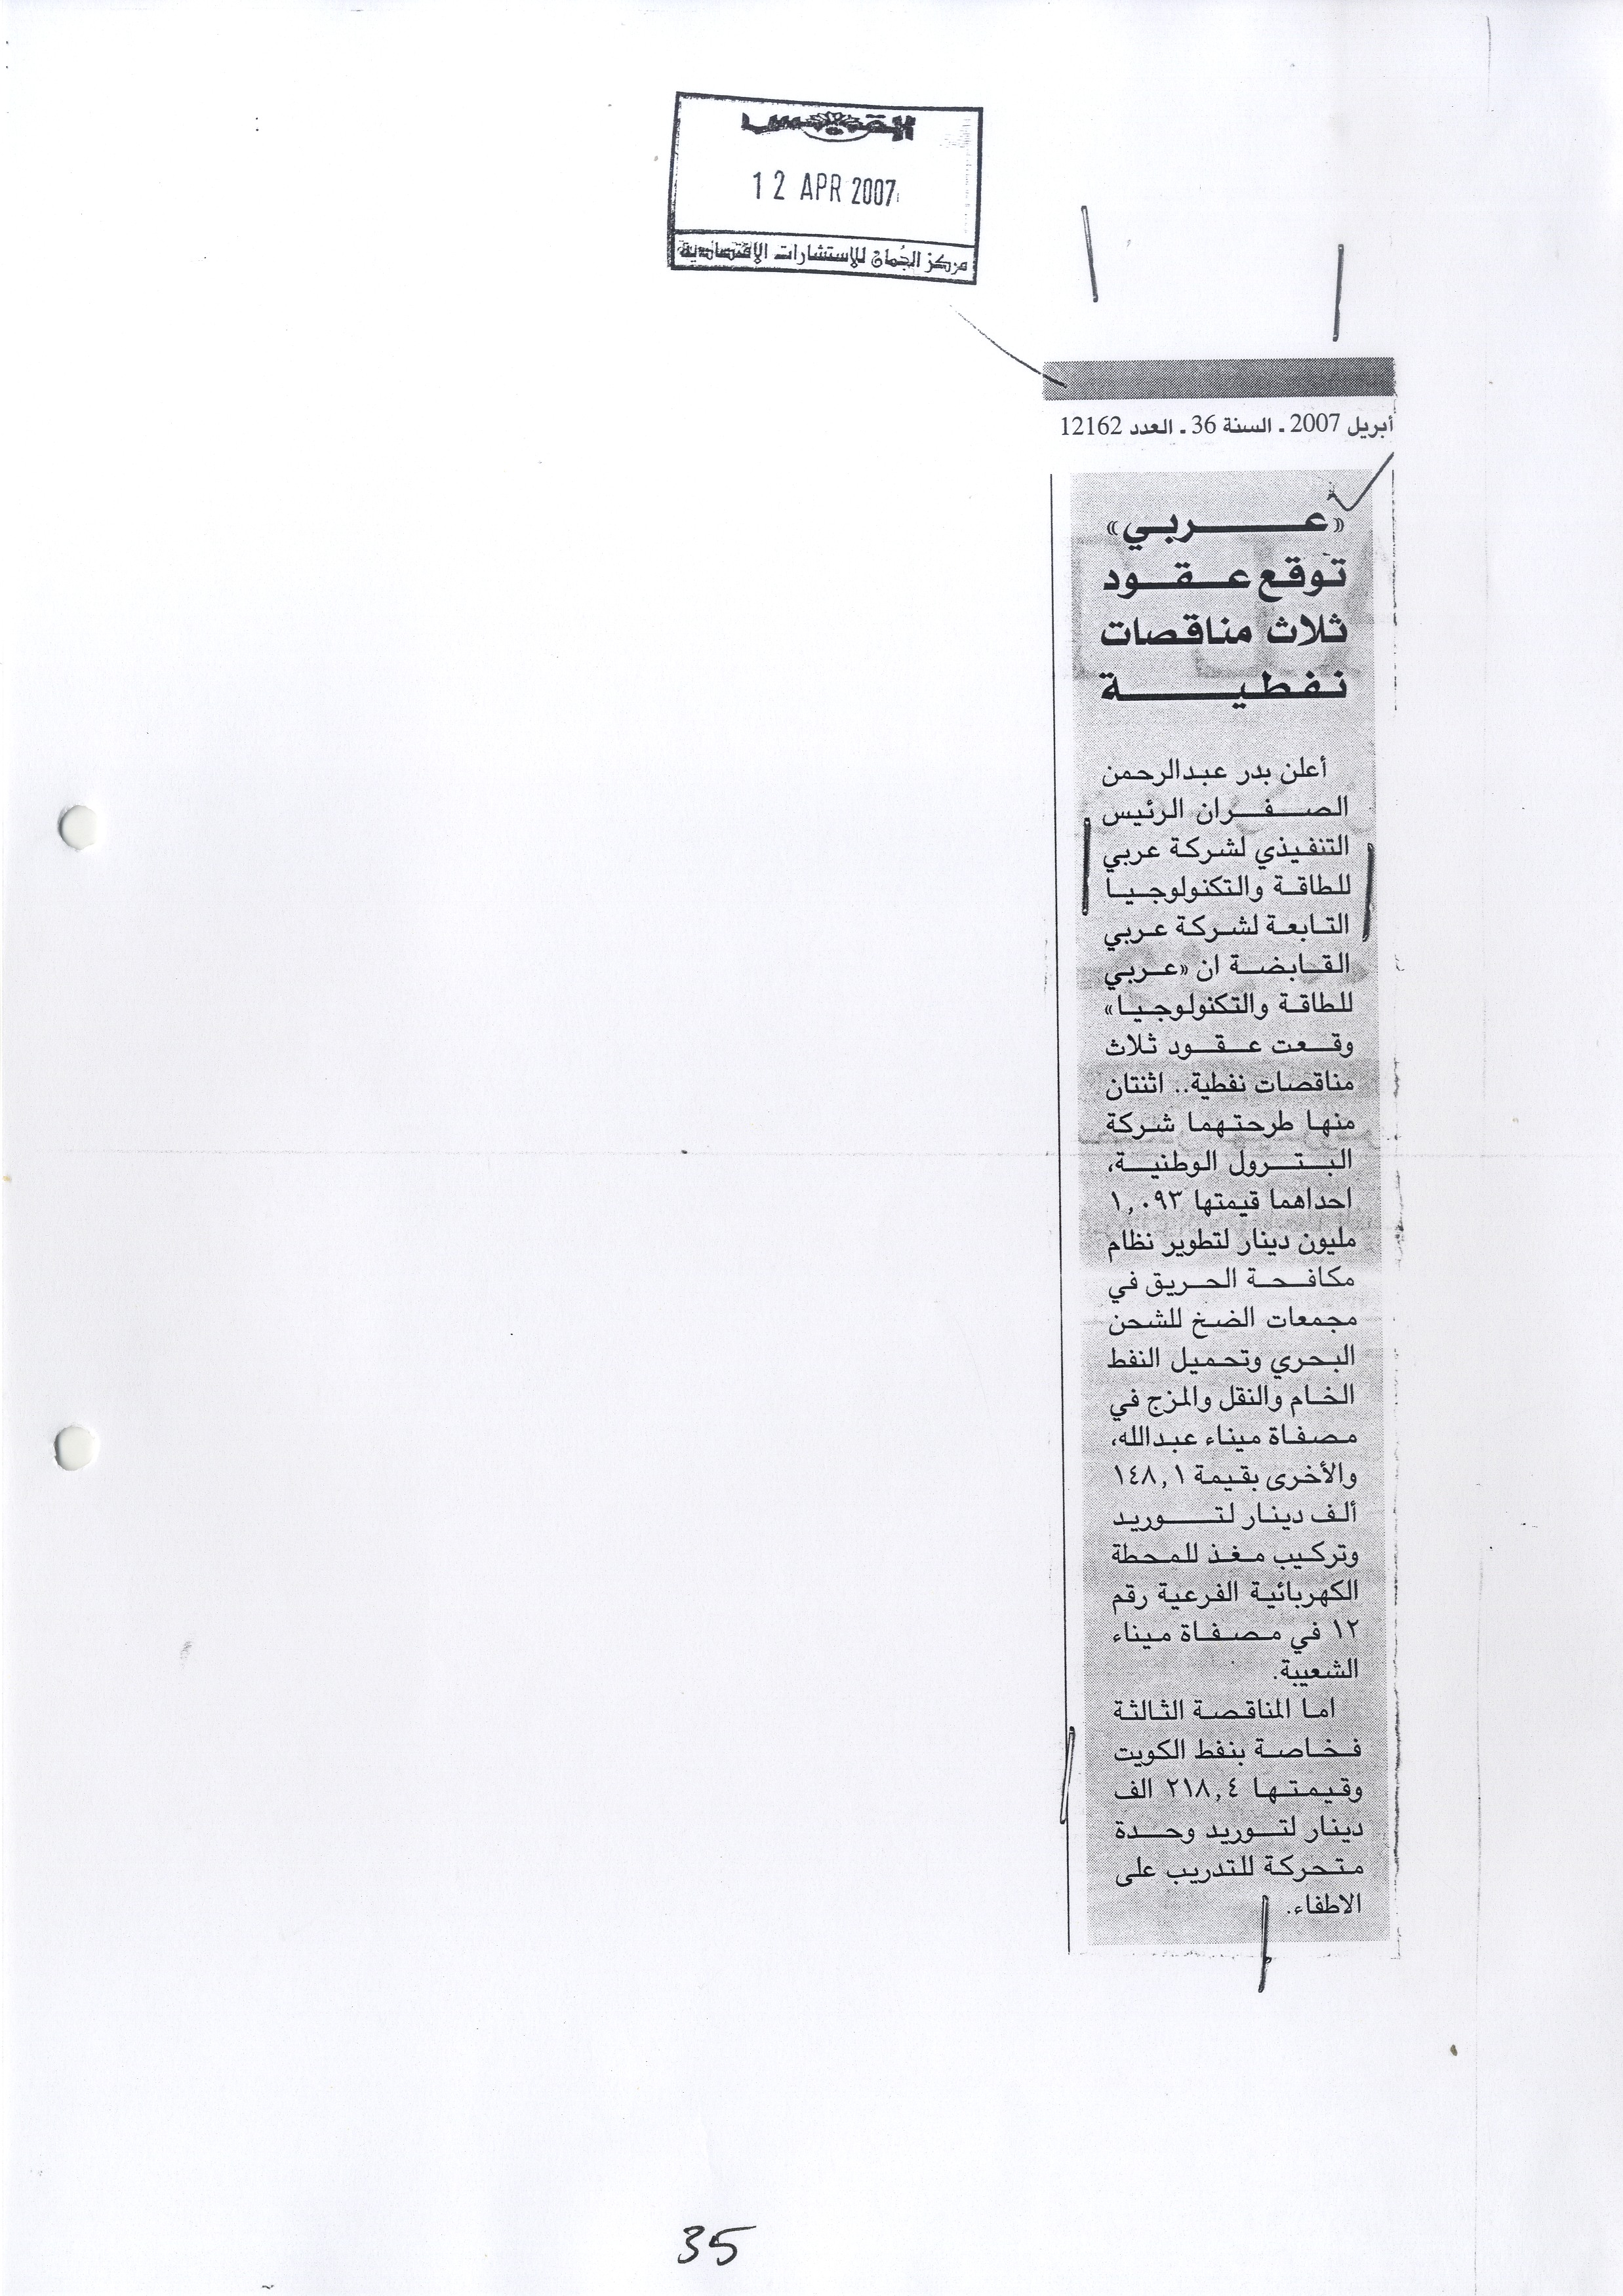 القبس
12 APR 2007
مركز الجُمان للإستشارات الإقتصادية
أبريل 2007 ـ السنة 36 ـ العدد 12162
«عربي»
توقع عقود
ثلاث مناقصات
نفطية
أعلن بدر عبدالرحمن
الصفران الرئيس
التنفيذي لشركة عربي
للطاقة والتكنولوجيا
التابعة لشركة عربي
القابضة ان «عربي
للطاقة والتكنولوجيا»
وقعت عقود ثلاث
مناقصات نفطية.. اثنتان
منها طرحتهما شركة
البترول الوطنية،
احداهما قيمتها ١,٠٩٣
مليون دينار لتطوير نظام
مكافحة الحريق في
مجمعات الضخ للشحن
البحري وتحميل النفط
الخام والنقل والمزج في
مصفاة ميناء عبدالله،
والأخرى بقيمة ١٤٨,١
ألف دينار لتوريد
وتركيب مغذ للمحطة
الكهربائية الفرعية رقم
١٢ في مصفاة ميناء
الشعيبة.
اما المناقصة الثالثة
فخاصة بنفط الكويت
وقيمتها ٢١٨,٤ الف
دينار لتوريد وحدة
متحركة للتدريب على
الاطفاء.
35